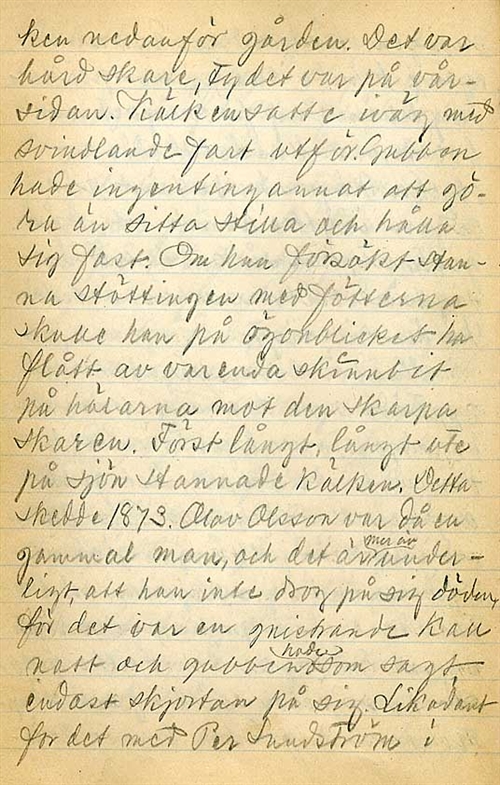 ken nedanför gården. Det var
hård skare, ty det var på vår-
sidan. Kälken satte iväg med
svindlande fart utför. Gubben
hade ingenting annat att gö-
ra än sitta stilla och hålla
sig fast. Om han försökt stan-
na stöttingen med fötterna
skulle han på ögonblicket ha
flått av varenda skinnbit
på hälarna mot den skarpa
skaren. Först långt, långt ute
på sjön stannade kälken. Detta
skedde 1873. Olov Olsson var då en
gammal man, och det är mer än under-
ligt, att han inte drog på sig döden,
för det var en gnistrande kall
natt och gubben hade som sagt
endast skjortan på sig. Likadant
for det med Per Sundström i